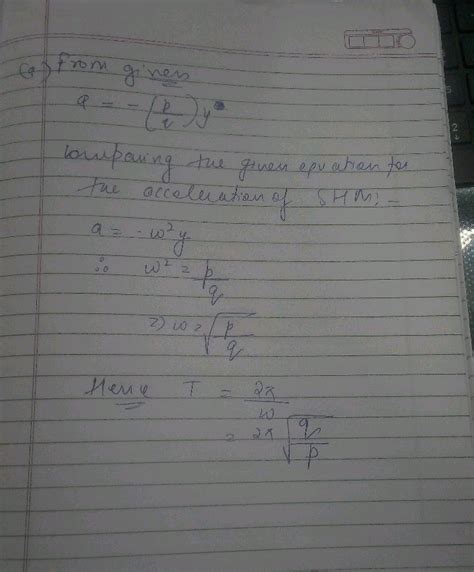 From given
a = -(p/q)y
Comparing the given equation for
the acceleration of SHM:-
a = -ω²y
∴ ω² = p/q
⇒ ω = √(p/q)
Hence T = 2π/ω
= 2π √(q/p)